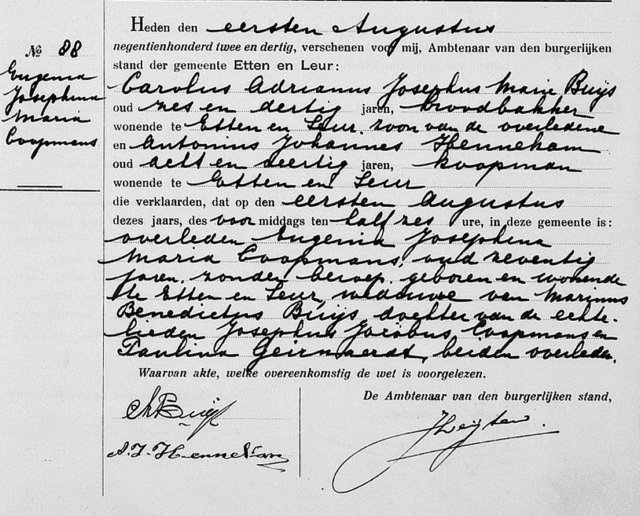 No 88
Eugenia
Josephina
Maria
Coopmans
Heden den eersten Augustus
negentienhonderd twee en dertig, verschenen voor mij, Ambtenaar van den burgerlijken
stand der gemeente Etten en Leur:
Carolus Adrianus Josephus Marie Buijs
oud zes en dertig jaren, broodbakker
wonende te Etten en Leur, zoon van de overledene
en Antonius Johannes Hennekam
oud acht en veertig jaren, koopman
wonende te Etten en Leur
die verklaarden, dat op den eersten Augustus
dezes jaars, des voor middags ten half zes ure, in deze gemeente is:
overleden Eugenia Josephina
Maria Coopmans, oud zeventig
jaren, zonder beroep, geboren en wonende
te Etten en Leur, weduwe van Marinus
Benedictus Buijs, dochter van de echte-
lieden Josephus Jacobus Coopmans en
Paulina Geirnaerdt, beiden overleden.
Waarvan akte, welke overeenkomstig de wet is voorgelezen.
De Ambtenaar van den burgerlijken stand,
Buijs
A. J. Hennekam